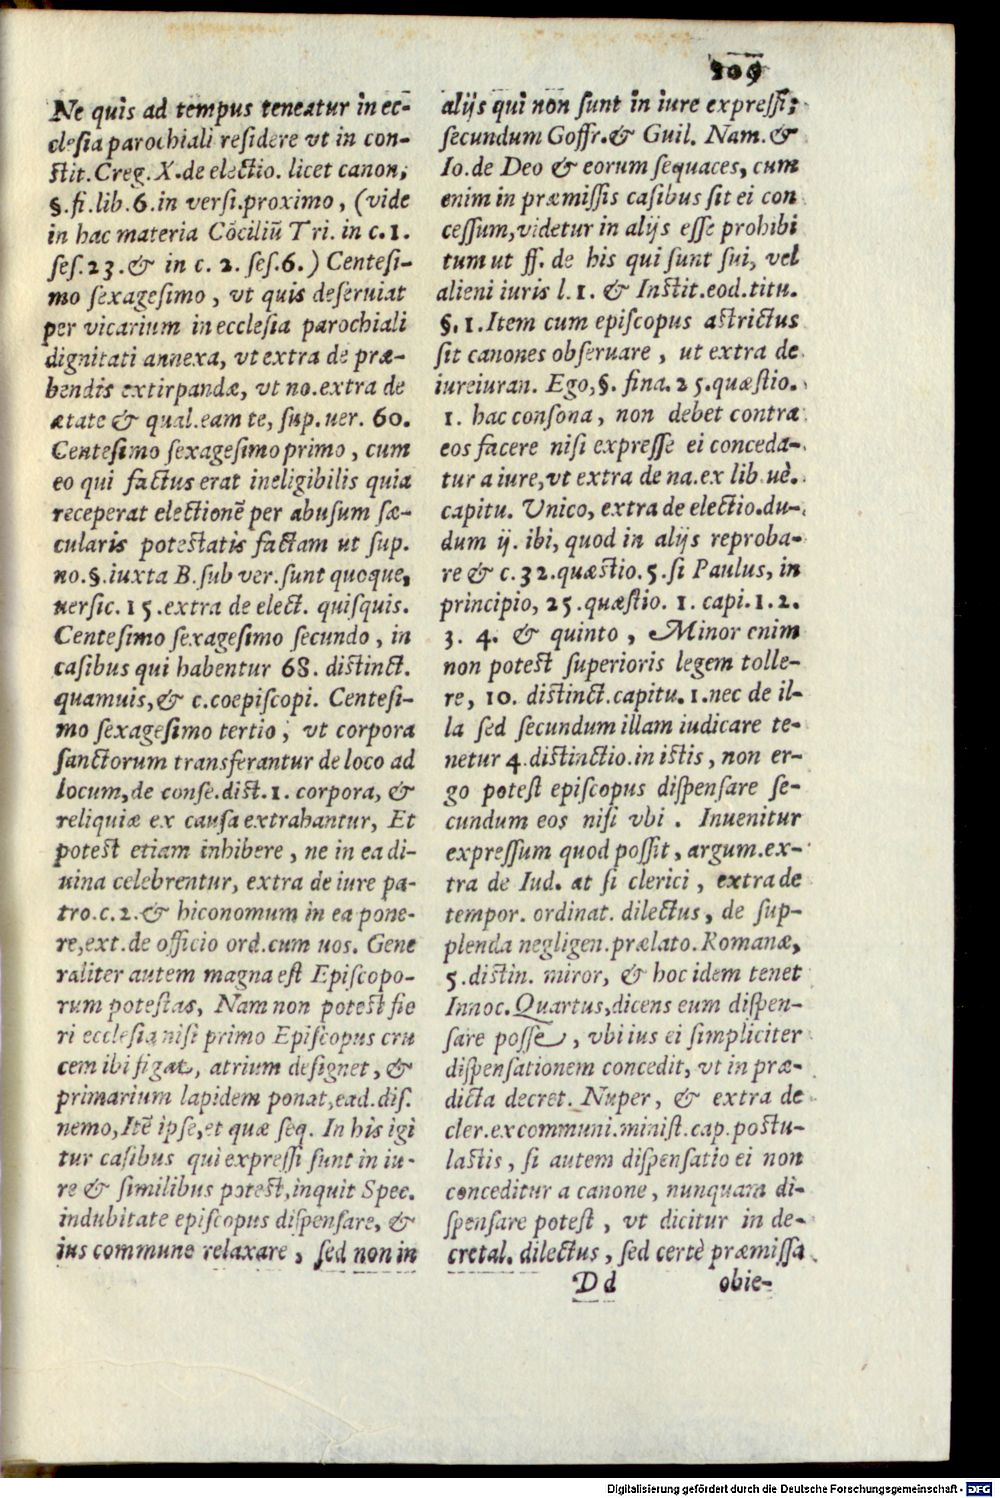 209
Ne quis ad tempus teneatur in ec-
clesia parochiali residere vt in con-
stit. Creg. X. de electio. licet canon;
§. fi. lib. 6. in versi. proximo, (vide
in hac materia Cōciliū Tri. in c. 1.
ses. 23. & in c. 2. ses. 6.) Centesi-
mo sexagesimo, vt quis deseruiat
per vicarium in ecclesia parochiali
dignitati annexa, vt extra de præ-
bendis extirpandæ, vt no. extra de
ætate & qual. eam te, sup. uer. 60.
Centesimo sexagesimo primo, cum
eo qui factus erat ineligibilis quia
receperat electionē per abusum sæ-
cularis potestatis factam ut sup.
no. §. iuxta B. sub ver. sunt quoque,
uersic. 15. extra de elect. quisquis.
Centesimo sexagesimo secundo, in
casibus qui habentur 68. distinct.
quamuis, & c. coepiscopi. Centesi-
mo sexagesimo tertio, vt corpora
sanctorum transferantur de loco ad
locum, de conse. dist. 1. corpora, &
reliquiæ ex causa extrahantur, Et
potest etiam inhibere, ne in ea di-
uina celebrentur, extra de iure pa-
tro. c. 2. & biconomum in ea pone-
re, ext. de officio ord. cum uos. Gene
raliter autem magna est Episcopo-
rum potestas, Nam non potest fie
ri ecclesia nisi primo Episcopus cru
cem ibi figat, atrium designet, &
primarium lapidem ponat, ead. dis.
nemo, Itē ipse, et quæ seq. In his igi
tur casibus qui expressi sunt in iu-
re & similibus potest, inquit Spec.
indubitate episcopus dispensare, &
ius commune relaxare, sed non in
alijs qui non sunt in iure expressi;
secundum Goffr. & Guil. Nam. &
Io. de Deo & eorum sequaces, cum
enim in præmissis casibus sit ei con
cessum, videtur in alijs esse prohibi
tum ut ff. de his qui sunt sui, vel
alieni iuris l. 1. & Instit. eod. titu.
§. 1. Item cum episcopus astrictus
sit canones obseruare, ut extra de
iureiuran. Ego, §. fina. 25. quæstio.
1. hac consona, non debet contra
eos facere nisi expresse ei conceda-
tur a iure, vt extra de na. ex lib. uè.
capitu. Unico, extra de electio. du-
dum ij. ibi, quod in alijs reproba-
re & c. 32. quæstio. 5. si Paulus, in
principio, 25. quæstio. 1. capi. 1. 2.
3. 4. & quinto, Minor enim
non potest superioris legem tolle-
re, 10. distinct. capitu. 1. nec de il-
la sed secundum illam iudicare te-
netur 4. distinctio. in istis, non er-
go potest episcopus dispensare se-
cundum eos nisi vbi. Inuenitur
expressum quod possit, argum. ex-
tra de Iud. at si clerici, extra de
tempor. ordinat. dilectus, de sup-
plenda negligen. prælato. Romanæ,
5. distin. miror, & hoc idem tenet
Innoc. Quartus, dicens eum dispen-
sare posse, vbi ius ei simpliciter
dispensationem concedit, vt in præ-
dicta decret. Nuper, & extra de
cler. excommuni. minist. cap. postu-
lastis, si autem dispensatio ei non
conceditur a canone, nunquam di-
spensare potest, vt dicitur in de-
cretal. dilectus, sed certè præmissa
Dd obie-
Digitalisierung gefördert durch die Deutsche Forschungsgemeinschaft - DFG